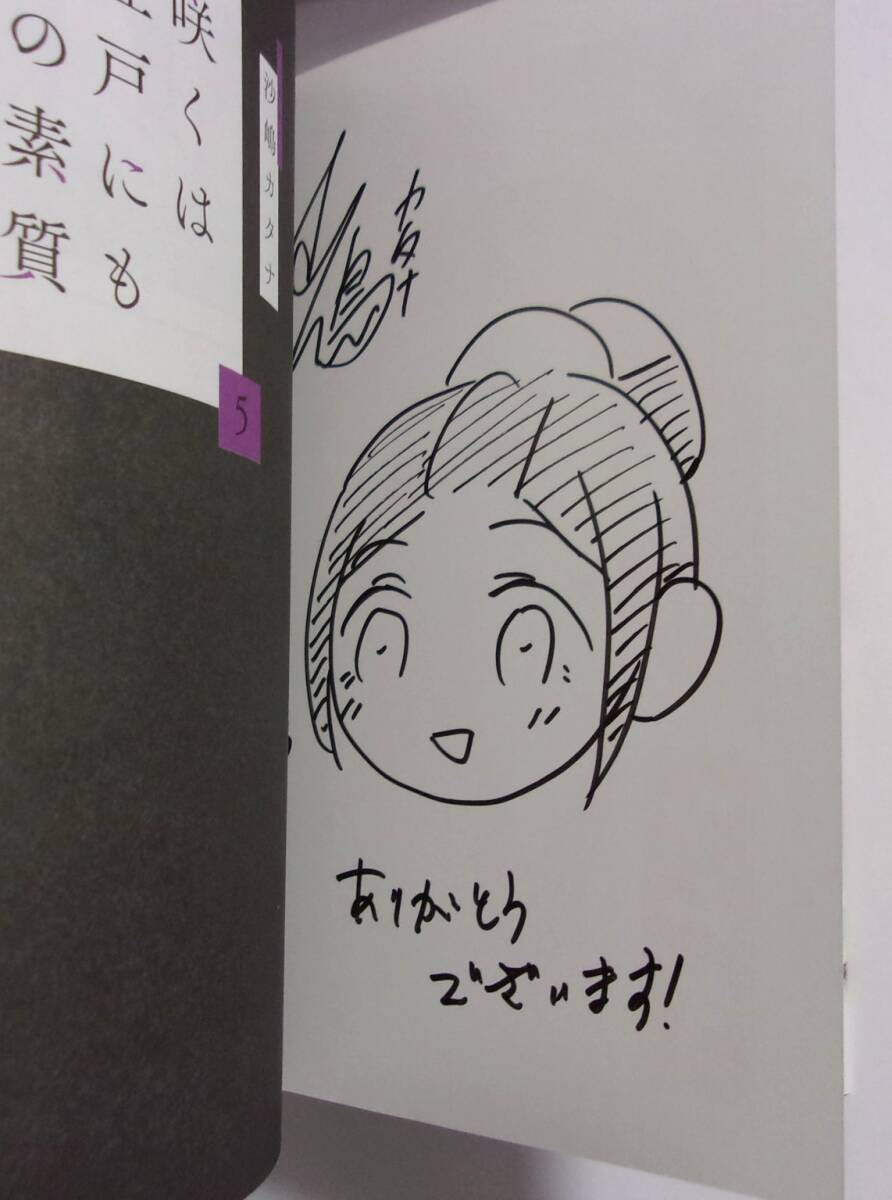 咲くは
江戸にも
の素質
沙嶋カタナ
5
カタナ
ありがとう
ございます!